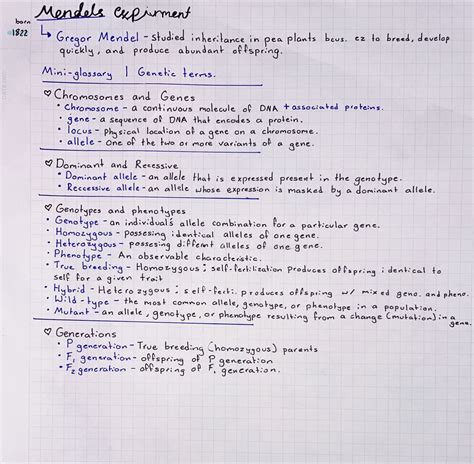 Mendels expirment
born
1822
↳ Gregor Mendel - studied inheritance in pea plants bcus. ez to breed, develop
quickly, and produce abundant offspring.
Mini-glossary | Genetic terms.
♡ Chromosomes and Genes
• Chromosome - a continuous molecule of DNA + associated proteins.
• gene - a sequence of DNA that encodes a protein.
• locus - physical location of a gene on a chromosome.
• allele - One of the two or more variants of a gene.
♡ Dominant and Recessive
• Dominant allele - an allele that is expressed present in the genotype.
• Reccessive allele - an allele whose expression is masked by a dominant allele.
♡ Genotypes and phenotypes
• Genotype - an individuals allele combination for a particular gene.
• Homozygous - possesing identical alleles of one gene.
• Heterozygous - possesing diffent alleles of one gene.
• Phenotype - An observable characteristic.
• True breeding - Homozygous: self-fertilization produces offspring identical to
self for a given trait
• Hybrid - Heterozygous: self-ferti. produces offspring w/ mixed geno. and pheno.
• Wild-type - the most common allele, genotype, or phenotype in a population.
• Mutant - an allele, genotype, or phenotype resulting from a change (mutation) in a
gene.
♡ Generations
• P generation - True breeding (homozygous) parents
• F₁ generation - offspring of P generation
• F₂ generation - offspring of F₁ generation.